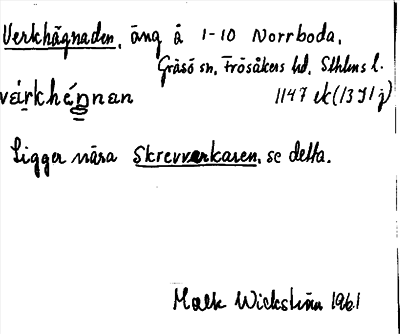 Verkhägnaden, äng å 1-10 Norrboda,
Gräsö sn, Frösåkers hd, Sthlms l.
vèrkhénnan 1147 ek (1391 j)
Ligger nära Skrevverkaren, se detta.
Wickström 1961